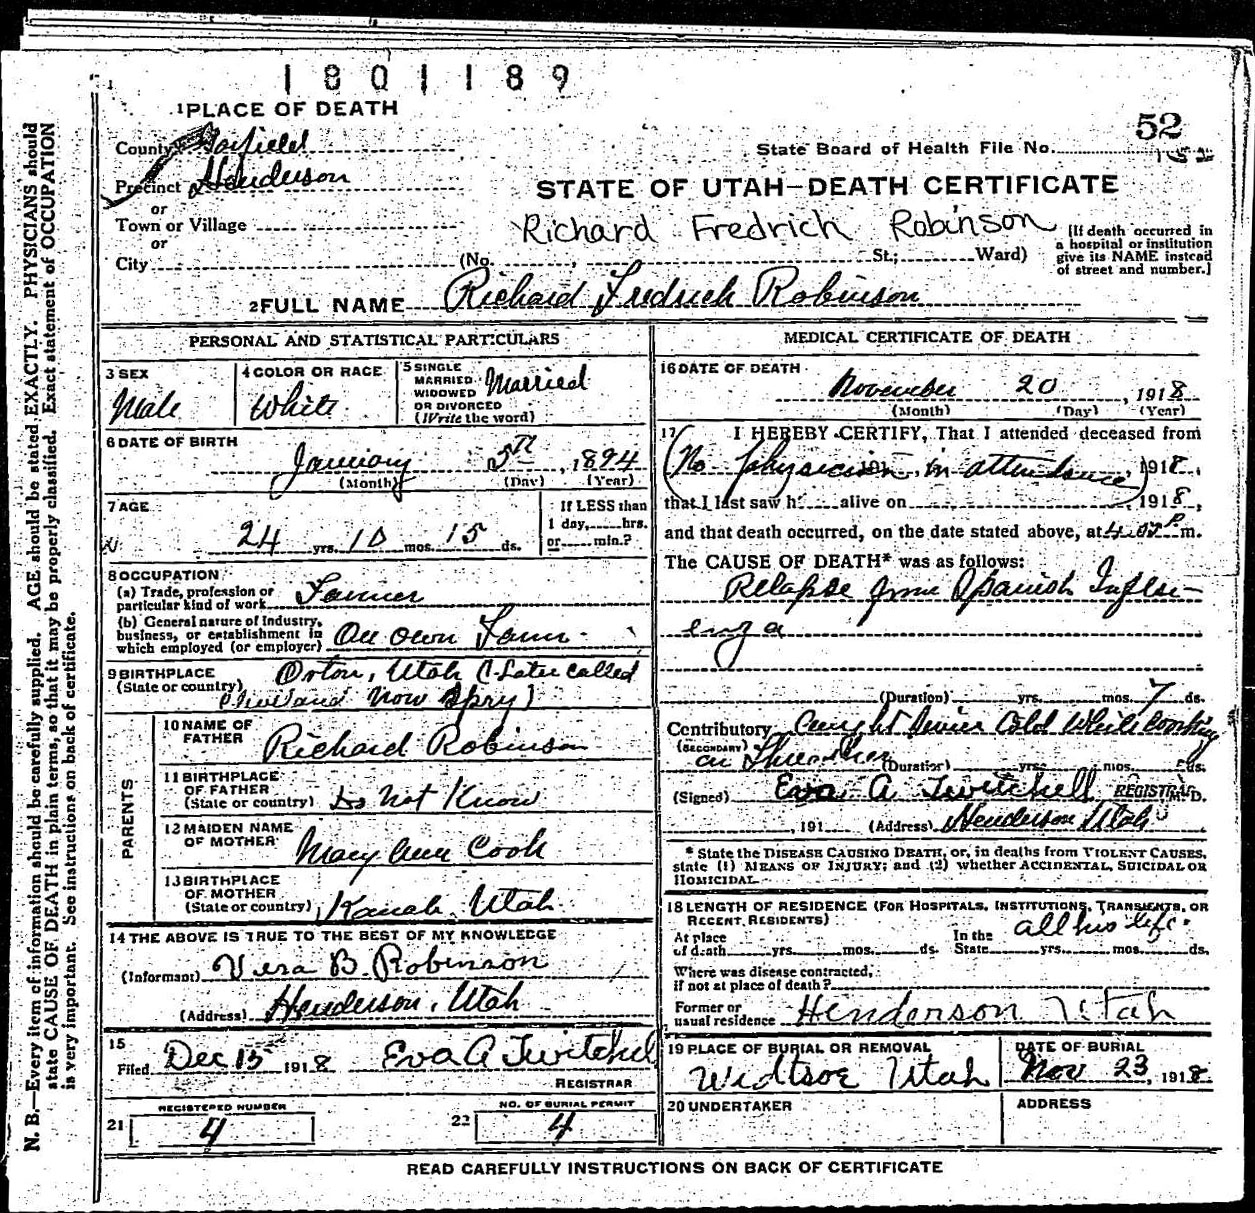 1801189
1 PLACE OF DEATH
52
County Garfield
State Board of Health File No. 152
Precinct Henderson
STATE OF UTAH—DEATH CERTIFICATE
or
Town or Village
Richard Fredrich Robinson
or
City (No. , St.; Ward)
[If death occurred in
a hospital or institution
give its NAME instead
of street and number.]
2 FULL NAME Richard Fredrick Robinson
PERSONAL AND STATISTICAL PARTICULARS
3 SEX
Male
4 COLOR OR RACE
White
5 SINGLE
MARRIED
WIDOWED
OR DIVORCED
(Write the word)
Married
6 DATE OF BIRTH
January 5th, 1894
(Month) (Day) (Year)
7 AGE
24 yrs. 10 mos. 15 ds.
If LESS than
1 day, hrs.
or min.?
8 OCCUPATION
(a) Trade, profession or
particular kind of work Farmer
(b) General nature of Industry,
business, or establishment in
which employed (or employer) On own Farm
9 BIRTHPLACE
(State or country)
Orton, Utah (Later called
Cleveland Now Spry)
PARENTS
10 NAME OF
FATHER Richard Robinson
11 BIRTHPLACE
OF FATHER
(State or country) Do Not Know
12 MAIDEN NAME
OF MOTHER Mary Ann Cook
13 BIRTHPLACE
OF MOTHER
(State or country) Kanab, Utah
14 THE ABOVE IS TRUE TO THE BEST OF MY KNOWLEDGE
(Informant) Vera B. Robinson
(Address) Henderson, Utah
15
Filed Dec 15 1918 Eva A Twitchell
REGISTRAR
REGISTERED NUMBER
21 4
NO. OF BURIAL PERMIT
22 4
MEDICAL CERTIFICATE OF DEATH
16 DATE OF DEATH
November 20, 1918
(Month) (Day) (Year)
17 I HEREBY CERTIFY, That I attended deceased from
(No physician in attendance), 1918,
that I last saw h alive on , 1918,
and that death occurred, on the date stated above, at P m.
The CAUSE OF DEATH* was as follows:
Relapse from Spanish Influ-
enza
(Duration) yrs. mos. 7 ds.
Contributory Caught Cold While Working
(SECONDARY) on
(Duration) yrs. mos. ds.
(Signed) Eva A Twitchell REGISTRAR M.D.
, 191 (Address) Henderson Utah
* State the DISEASE CAUSING DEATH, or, in deaths from VIOLENT CAUSES,
state (1) MEANS OF INJURY; and (2) whether ACCIDENTAL, SUICIDAL OR
HOMICIDAL.
18 LENGTH OF RESIDENCE (FOR HOSPITALS, INSTITUTIONS, TRANSIENTS, OR
RECENT RESIDENTS)
At place
of death yrs. mos. ds.
In the
State yrs. mos. ds.
all his life.
Where was disease contracted,
if not at place of death?
Former or
usual residence Henderson Utah
19 PLACE OF BURIAL OR REMOVAL
Widtsoe Utah
DATE OF BURIAL
Nov 23, 1918
20 UNDERTAKER
ADDRESS
READ CAREFULLY INSTRUCTIONS ON BACK OF CERTIFICATE
N. B.—Every item of information should be carefully supplied. AGE should be stated EXACTLY. PHYSICIANS should
state CAUSE OF DEATH in plain terms, so that it may be properly classified. Exact statement of OCCUPATION
is very important. See instructions on back of certificate.